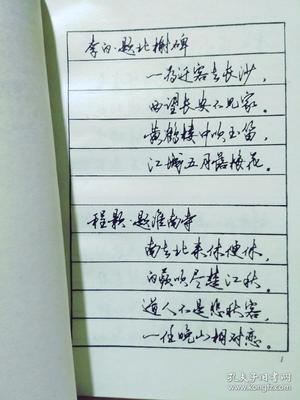 李白·题北榭碑
一为迁客去长沙，
西望长安不见家。
黄鹤楼中吹玉笛，
江城五月落梅花。
程颢·题淮南寺
南去北来休便休，
白蘋吹尽楚江秋。
道人不是悲秋客，
一任晚山相对愁。
1
孔夫子旧书网